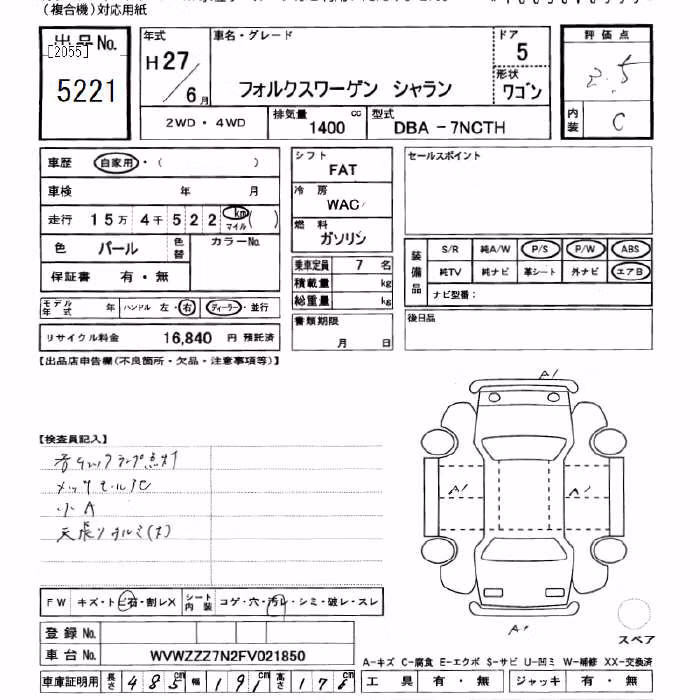 (複合機)対応用紙
出品No.
[2055]
5221
年式
H27/6月
車名・グレード
フォルクスワーゲン シャラン
ドア
5
形状
ワゴン
評価点
2.5
内装
C
2WD・4WD
排気量
1400 cc
型式
DBA - 7NCTH
車歴 自家用・( )
車検 年 月
走行 15万 4千 5 2 2 km マイル( )
色 パール 色替 カラーNo.
保証書 有・無
シフト
FAT
冷房
WAC
燃料
ガソリン
乗車定員 7 名
積載量 kg
総重量 kg
書類期限
月 日
セールスポイント
装備品
S/R 純A/W P/S P/W ABS
純TV 純ナビ 革シート 外ナビ エアB
ナビ型番:
後日品
モデル年式 年 ハンドル 左・右 ディーラー・並行
リサイクル料金 16,840 円 預託済
【出品店申告欄(不良箇所・欠品・注意事項等)】
【検査員記入】
小A
A1
A1
A1
A1
FW キズ・トビ石・割レX シート内装 コゲ・穴・汚レ・シミ・破レ・スレ
登録No.
車台No. WVWZZZ7N2FV021850
車庫証明用 長さ 485cm 幅 191cm 高さ 176cm
スペア
A-キズ C-腐食 E-エクボ S-サビ U-凹ミ W-補修 XX-交換済
工具 有・無 ジャッキ 有・無